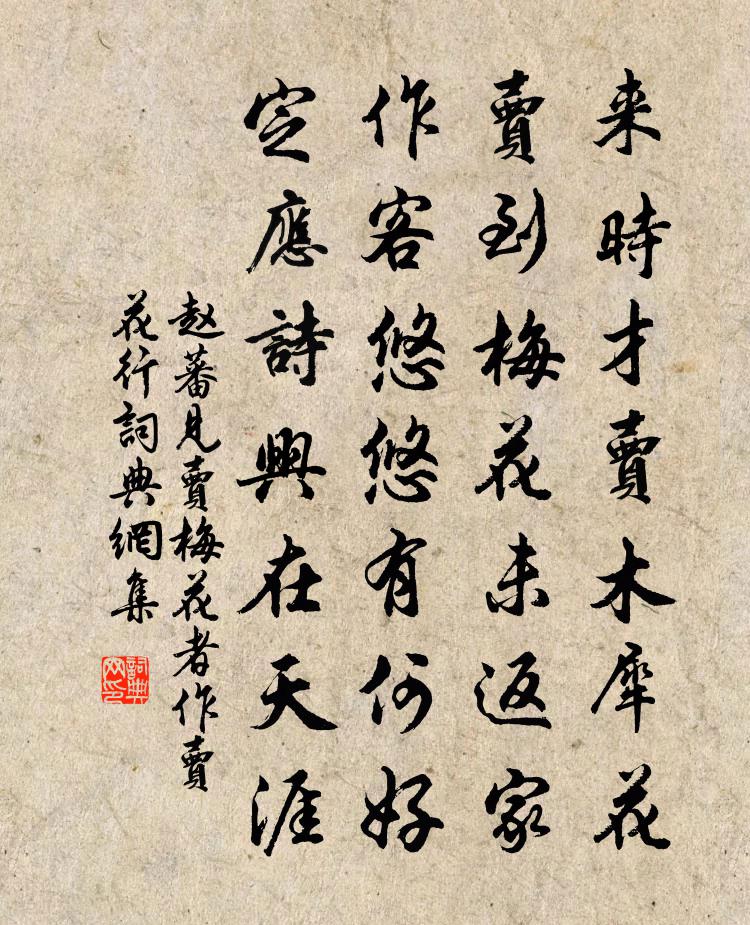 来時才賣木犀花
賣到梅花未返家
作客悠悠有何好
定應詩興在天涯
赵蕃見賣梅花者作賣
花行詞典網集
詞典
网印